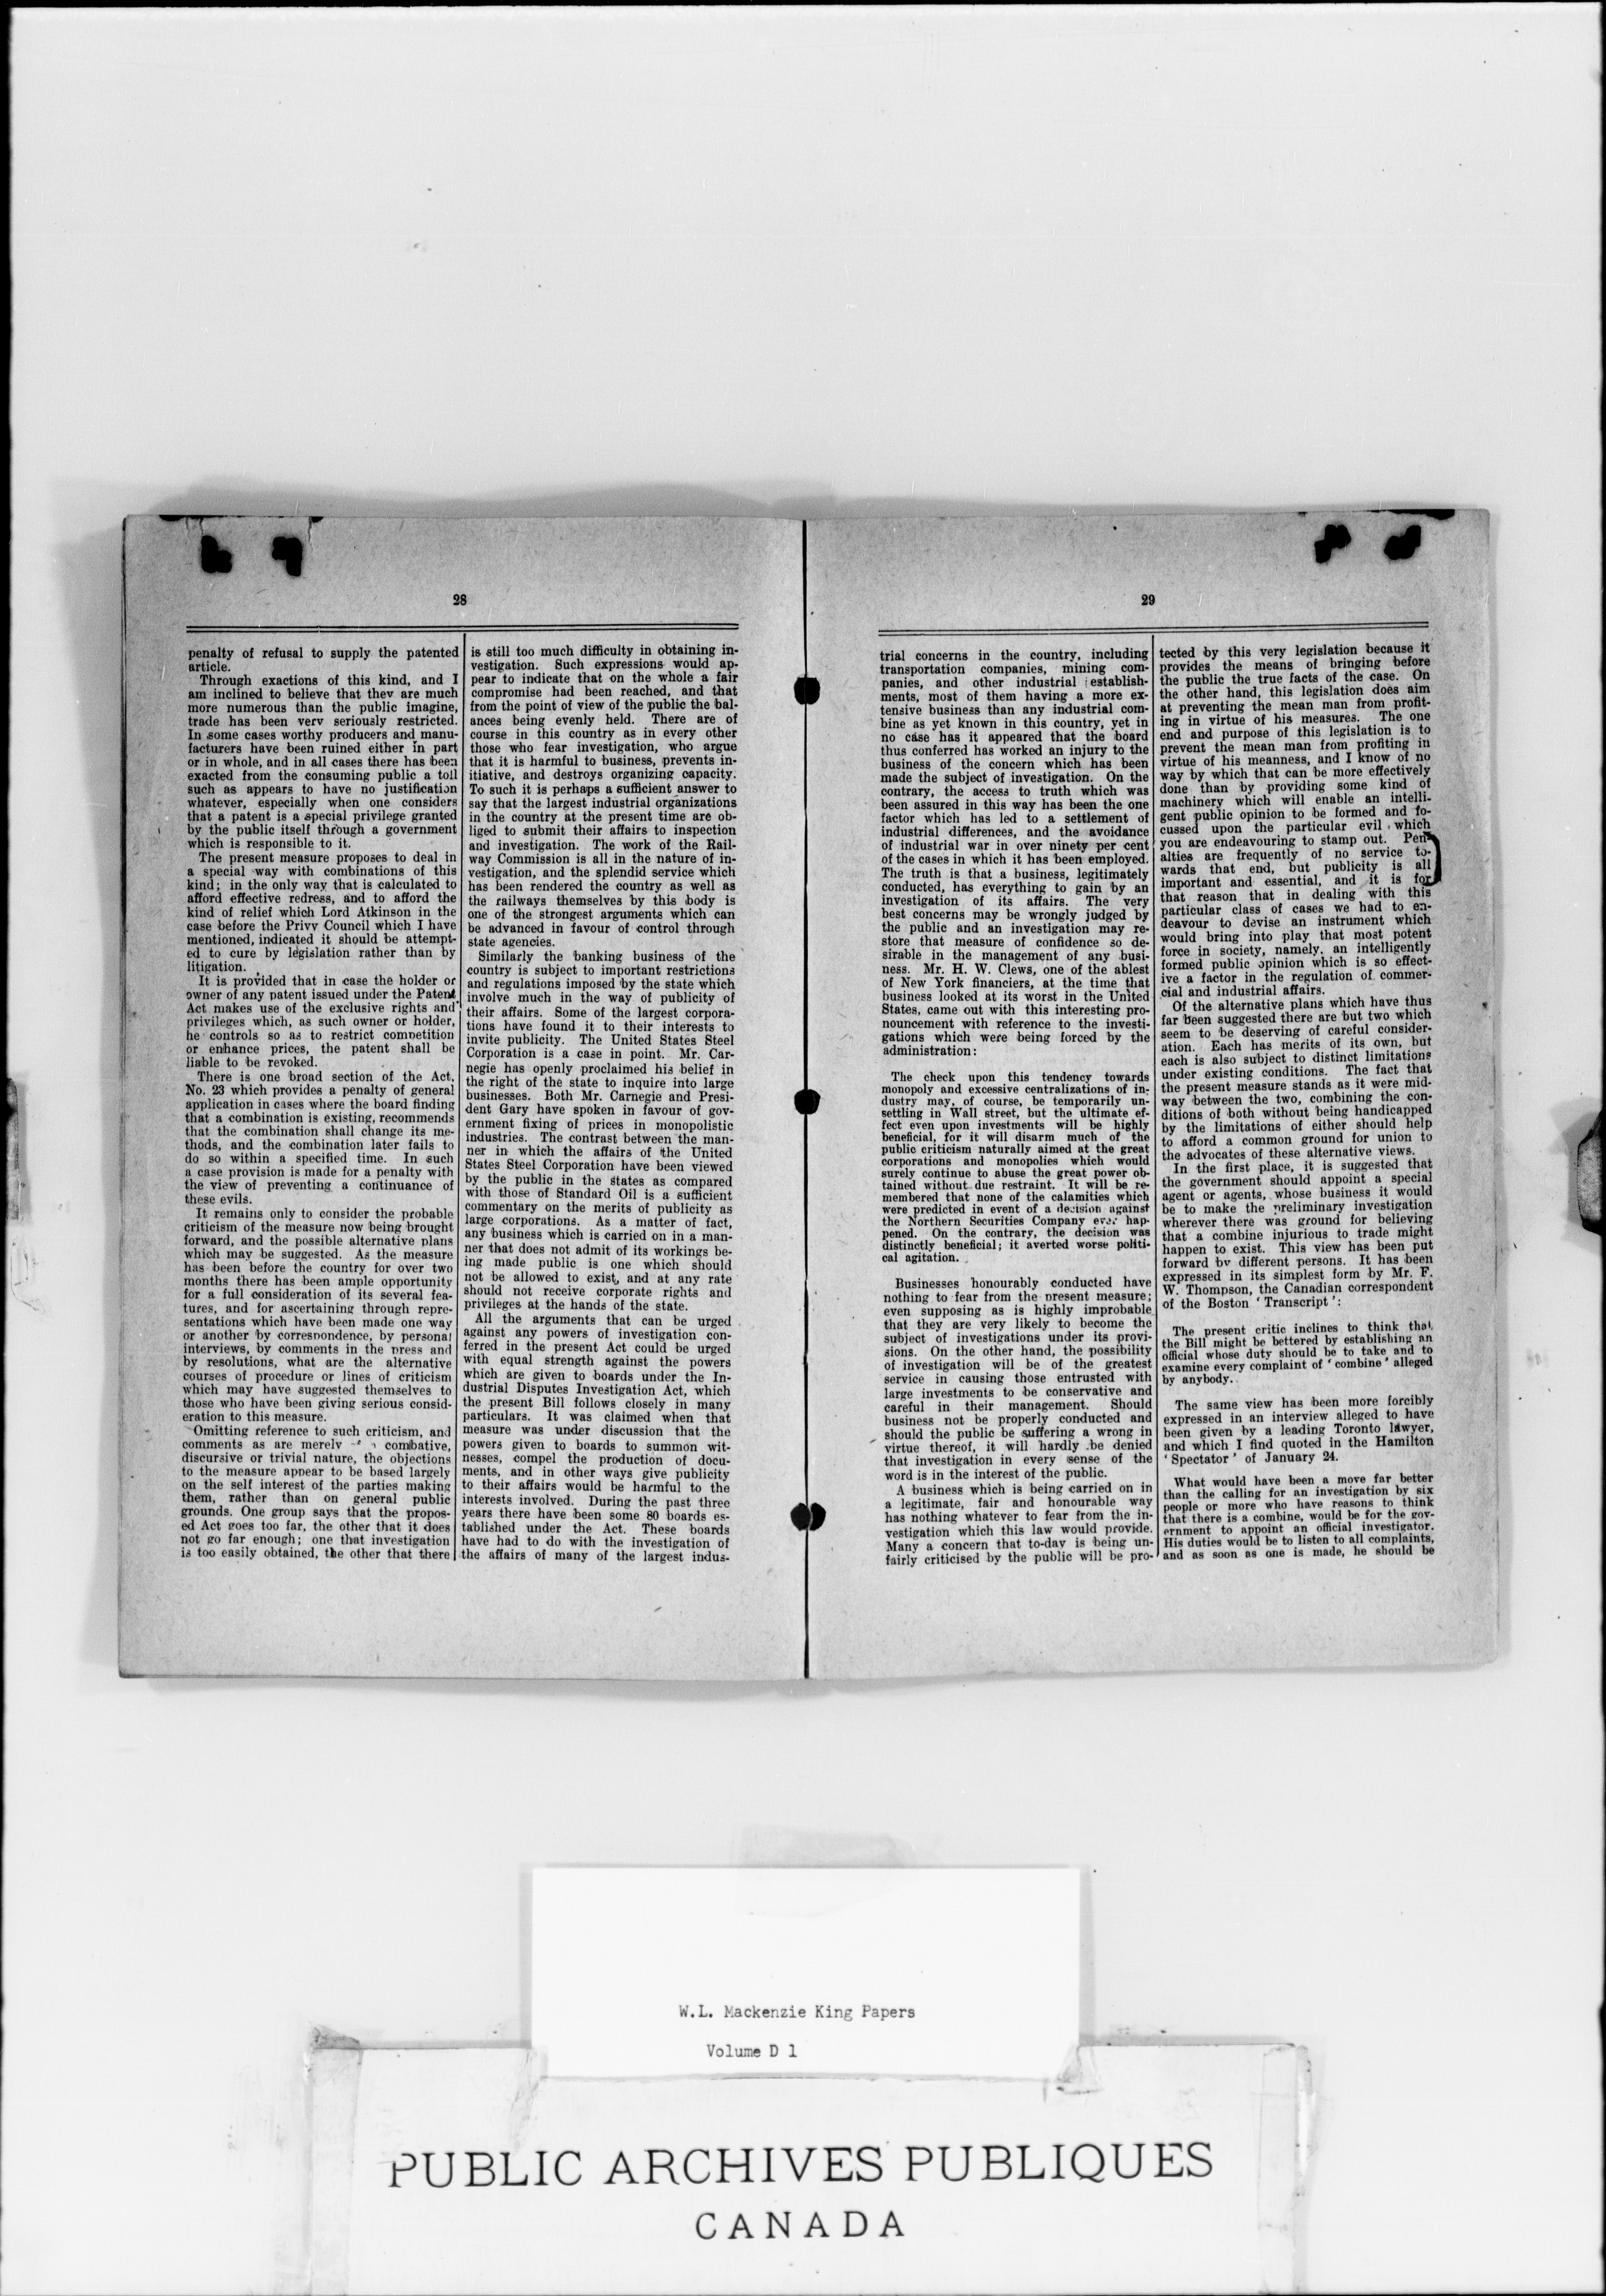 28
penalty of refusal to supply the patented
article.
Through exactions of this kind, and I
am inclined to believe that they are much
more numerous than the public imagine,
trade has been very seriously restricted.
In some cases worthy producers and manu-
facturers have been ruined either in part
or in whole, and in all cases there has been
exacted from the consuming public a toll
such as appears to have no justification
whatever, especially when one considers
that a patent is a special privilege granted
by the public itself through a government
which is responsible to it.
The present measure proposes to deal in
a special way with combinations of this
kind; in the only way that is calculated to
afford effective redress, and to afford the
kind of relief which Lord Atkinson in the
case before the Privy Council which I have
mentioned, indicated it should be attempt-
ed to cure by legislation rather than by
litigation.
It is provided that in case the holder or
owner of any patent issued under the Patent
Act makes use of the exclusive rights and
privileges which, as such owner or holder,
he controls so as to restrict competition
or enhance prices, the patent shall be
liable to be revoked.
There is one broad section of the Act,
No. 23 which provides a penalty of general
application in cases where the board finding
that a combination is existing, recommends
that the combination shall change its me-
thods, and the combination later fails to
do so within a specified time. In such
a case provision is made for a penalty with
the view of preventing a continuance of
these evils.
It remains only to consider the probable
criticism of the measure now being brought
forward, and the possible alternative plans
which may be suggested. As the measure
has been before the country for over two
months there has been ample opportunity
for a full consideration of its several fea-
tures, and for ascertaining through repre-
sentations which have been made one way
or another by correspondence, by personal
interviews, by comments in the press and
by resolutions, what are the alternative
courses of procedure or lines of criticism
which may have suggested themselves to
those who have been giving serious consid-
eration to this measure.
Omitting reference to such criticism, and
comments as are merely combative,
discursive or trivial nature, the objections
to the measure appear to be based largely
on the self interest of the parties making
them, rather than on general public
grounds. One group says that the propos-
ed Act goes too far, the other that it does
not go far enough; one that investigation
is too easily obtained, the other that there
is still too much difficulty in obtaining in-
vestigation. Such expressions would ap-
pear to indicate that on the whole a fair
compromise had been reached, and that
from the point of view of the public the bal-
ances being evenly held. There are of
course in this country as in every other
those who fear investigation, who argue
that it is harmful to business, prevents in-
itiative, and destroys organizing capacity.
To such it is perhaps a sufficient answer to
say that the largest industrial organizations
in the country at the present time are ob-
liged to submit their affairs to inspection
and investigation. The work of the Rail-
way Commission is all in the nature of in-
vestigation, and the splendid service which
has been rendered the country as well as
the railways themselves by this body is
one of the strongest arguments which can
be advanced in favour of control through
state agencies.
Similarly the banking business of the
country is subject to important restrictions
and regulations imposed by the state which
involve much in the way of publicity of
their affairs. Some of the largest corpora-
tions have found it to their interests to
invite publicity. The United States Steel
Corporation is a case in point. Mr. Car-
negie has openly proclaimed his belief in
the right of the state to inquire into large
businesses. Both Mr. Carnegie and Presi-
dent Gary have spoken in favour of gov-
ernment fixing of prices in monopolistic
industries. The contrast between the man-
ner in which the affairs of the United
States Steel Corporation have been viewed
by the public in the States as compared
with those of Standard Oil is a sufficient
commentary on the merits of publicity as
large corporations. As a matter of fact,
any business which is carried on in a man-
ner that does not admit of its workings be-
ing made public is one which should
not be allowed to exist, and at any rate
should not receive corporate rights and
privileges at the hands of the state.
All the arguments that can be urged
against any powers of investigation con-
ferred in the present Act could be urged
with equal strength against the powers
which are given to boards under the In-
dustrial Disputes Investigation Act, which
the present Bill follows closely in many
particulars. It was claimed when that
measure was under discussion that the
powers given to boards to summon wit-
nesses, compel the production of docu-
ments, and in other ways give publicity
to their affairs would be harmful to the
interests involved. During the past three
years there have been some 80 boards es-
tablished under the Act. These boards
have had to do with the investigation of
the affairs of many of the largest indus-
29
trial concerns in the country, including
transportation companies, mining com-
panies, and other industrial establish-
ments, most of them having a more ex-
tensive business than any industrial com-
bine as yet known in this country, yet in
no case has it appeared that the board
thus conferred has worked an injury to the
business of the concern which has been
made the subject of investigation. On the
contrary, the access to truth which was
been assured in this way has been the one
factor which has led to a settlement of
industrial differences, and the avoidance
of industrial war in over ninety per cent
of the cases in which it has been employed.
The truth is that a business, legitimately
conducted, has everything to gain by an
investigation of its affairs. The very
best concerns may be wrongly judged by
the public and an investigation may re-
store that measure of confidence so de-
sirable in the management of any busi-
ness. Mr. H. W. Clews, one of the ablest
of New York financiers, at the time that
business looked at its worst in the United
States, came out with this interesting pro-
nouncement with reference to the investi-
gations which were being forced by the
administration:
The check upon this tendency towards
monopoly and excessive centralizations of in-
dustry may, of course, be temporarily un-
settling in Wall street, but the ultimate ef-
fect even upon investments will be highly
beneficial, for it will disarm much of the
public criticism naturally aimed at the great
corporations and monopolies which would
surely continue to abuse the great power ob-
tained without due restraint. It will be re-
membered that none of the calamities which
were predicted in event of a decision against
the Northern Securities Company ever hap-
pened. On the contrary, the decision was
distinctly beneficial; it averted worse politi-
cal agitation.
Businesses honourably conducted have
nothing to fear from the present measure;
even supposing as is highly improbable
that they are very likely to become the
subject of investigations under its provi-
sions. On the other hand, the possibility
of investigation will be of the greatest
service in causing those entrusted with
large investments to be conservative and
careful in their management. Should
business not be properly conducted and
should the public be suffering a wrong in
virtue thereof, it will hardly be denied
that investigation in every sense of the
word is in the interest of the public.
A business which is being carried on in
a legitimate, fair and honourable way
has nothing whatever to fear from the in-
vestigation which this law would provide.
Many a concern that to-day is being un-
fairly criticised by the public will be pro-
tected by this very legislation because it
provides the means of bringing before
the public the true facts of the case. On
the other hand, this legislation does aim
at preventing the mean man from profit-
ing in virtue of his measures. The one
end and purpose of this legislation is to
prevent the mean man from profiting in
virtue of his meanness, and I know of no
way by which that can be more effectively
done than by providing some kind of
machinery which will enable an intelli-
gent public opinion to be formed and fo-
cussed upon the particular evil which
you are endeavouring to stamp out. Pen-
alties are frequently of no service to-
wards that end, but publicity is all
important and essential, and it is for
that reason that in dealing with this
particular class of cases we had to en-
deavour to devise an instrument which
would bring into play that most potent
force in society, namely, an intelligently
formed public opinion which is so effect-
ive a factor in the regulation of commer-
cial and industrial affairs.
Of the alternative plans which have thus
far been suggested there are but two which
seem to be deserving of careful consider-
ation. Each has merits of its own, but
each is also subject to distinct limitations
under existing conditions. The fact that
the present measure stands as it were mid-
way between the two, combining the con-
ditions of both without being handicapped
by the limitations of either should help
to afford a common ground for union to
the advocates of these alternative views.
In the first place, it is suggested that
the government should appoint a special
agent or agents, whose business it would
be to make the preliminary investigation
wherever there was ground for believing
that a combine injurious to trade might
happen to exist. This view has been put
forward by different persons. It has been
expressed in its simplest form by Mr. F.
W. Thompson, the Canadian correspondent
of the Boston ' Transcript ':
The present critic inclines to think that
the Bill might be bettered by establishing an
official whose duty should be to take and to
examine every complaint of ' combine ' alleged
by anybody.
The same view has been more forcibly
expressed in an interview alleged to have
been given by a leading Toronto lawyer,
and which I find quoted in the Hamilton
' Spectator ' of January 24.
What would have been a move far better
than the calling for an investigation by six
people or more who have reasons to think
that there is a combine, would be for the gov-
ernment to appoint an official investigator.
His duties would be to listen to all complaints,
and as soon as one is made, he should be
W.L. Mackenzie King Papers
Volume D 1
PUBLIC ARCHIVES PUBLIQUES
CANADA